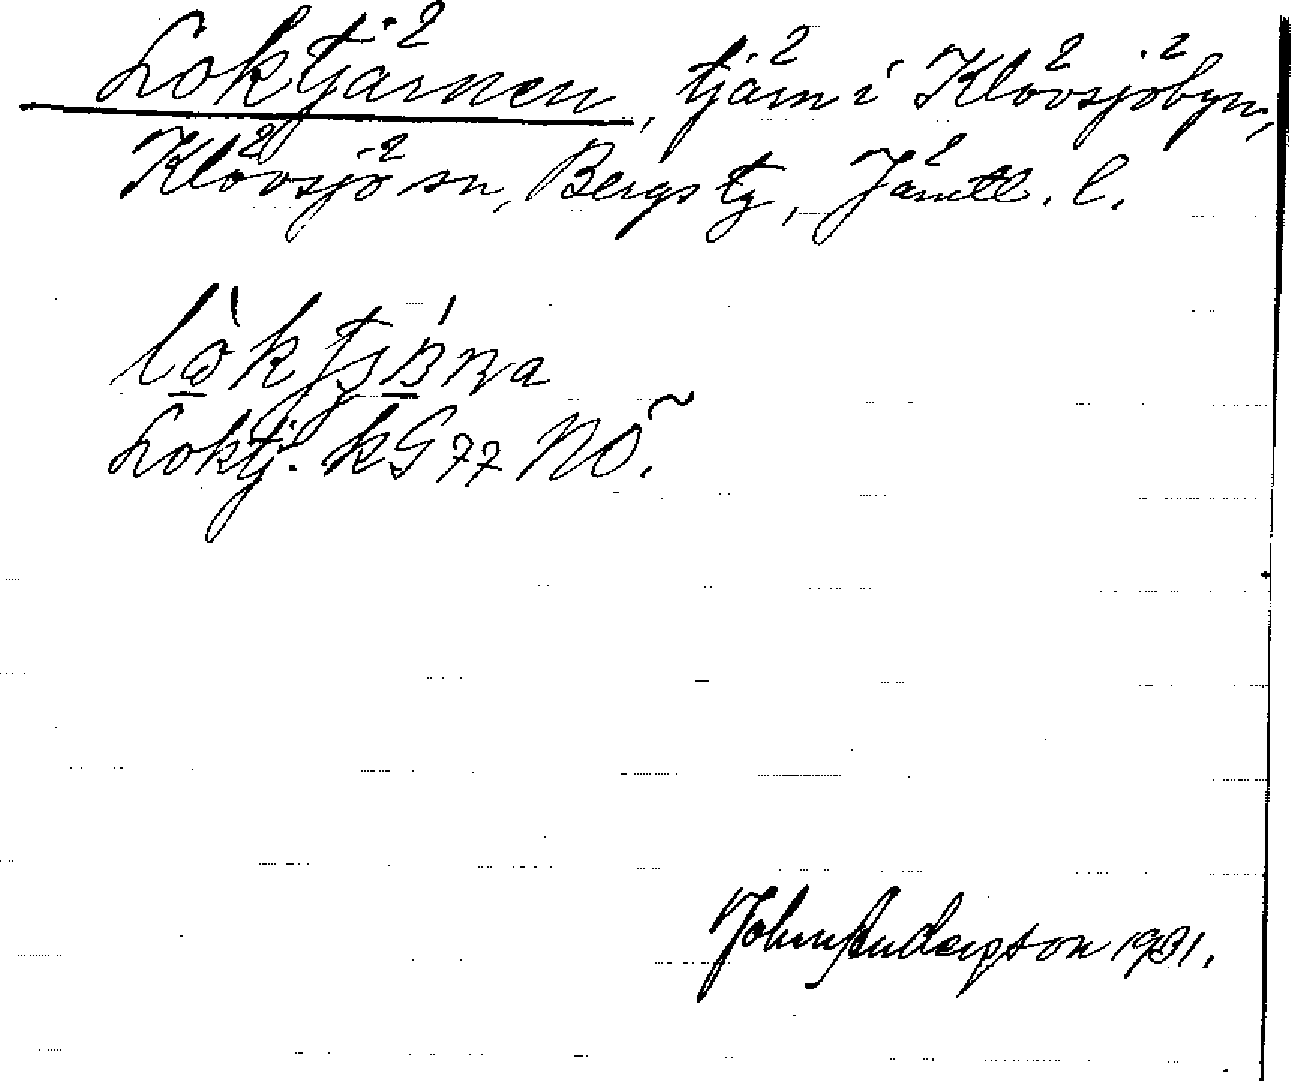 Loktjärnen, tjärn i Klövsjöbyn,
Klövsjö sn, Bergs tg, Jämtl. l.
Loktj. kG 77 NÖ.
John Anderson 1931.